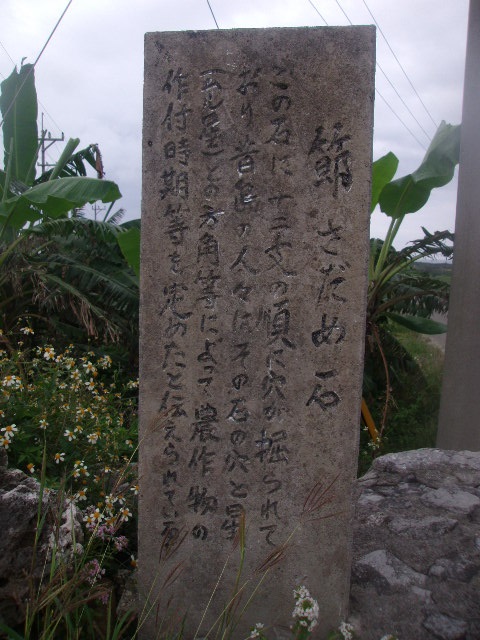 節さだめ石
この石に十二支の順に穴が掘られて
おり昔島の人々はその石の穴と星
との方角等によって農作物の
作付時期等を定めたと伝えられている